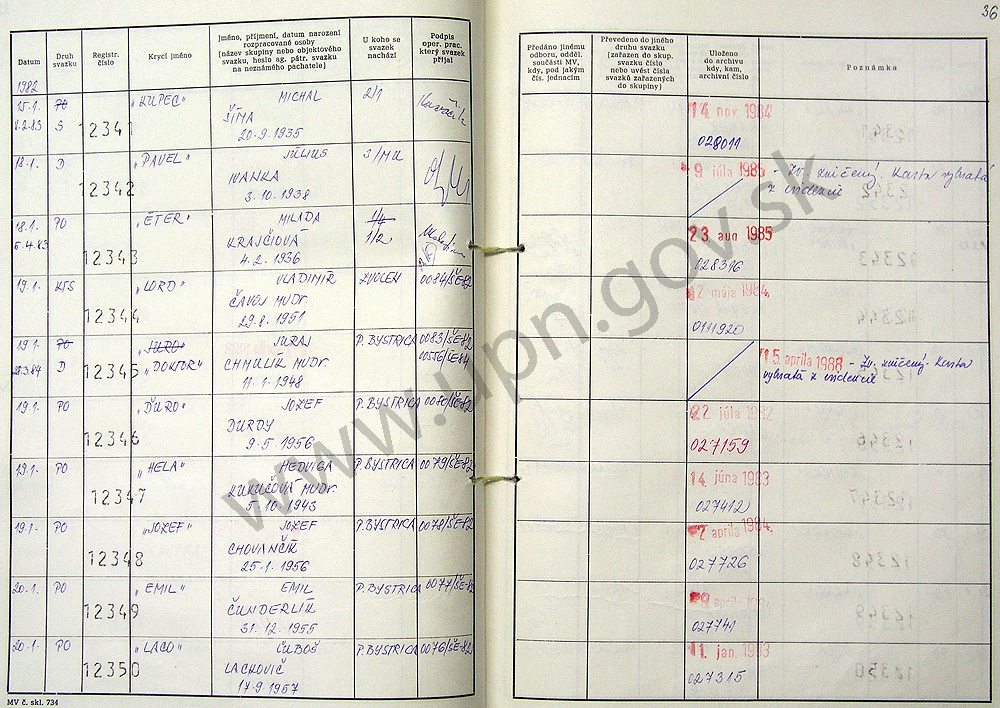 36
Datum
Druh svazku
Registr. číslo
Krycí jméno
Jméno, příjmení, datum narození
rozpracované osoby
(název skupiny nebo objektového
svazku, heslo ag. pátr. svazku
na neznámého pachatele)
U koho se
svazek
nachází
Podpis
oper. prac.
který svazek
přijal
Předáno jinému
odboru, odděl.
součásti MV,
kdy, pod jakým
čís. jednacím
Převedeno do jiného
druhu svazku
(zařazen do skup.
svazku číslo
nebo uvést čísla
svazků zařazených
do skupiny)
Uloženo
do archivu
kdy, kam,
archivní číslo
Poznámka
1982
15.1. PO „KUPEC" MICHAL 2/1
8.2.83 S 12341 ŠÍMA
20.9.1935
14. nov. 1984
028011
12.1. D „PAVEL" JÚLIUS 3/MU
12342 IVANKA
3.10.1938
9 júla 1985 - Zv. zničený. Karta vybratá
z evidencie
18.1. PO „ÉTER" MILADA 1/4
5.4.83 12343 KRAJČIOVÁ 1/2
4.2.1936
23. aug 1985
028316
19.1. KTS „LORD" VLADIMÍR ZVOLEN 0084/ŠE-82
12344 ČAVOJ MUDr.
29.8.1951
2 mája 1984
19.1. PO „JURO" JURAJ P. BYSTRICA 0083/ŠE-82
D 12345 „DOKTOR" CHMULÍK MUDr.
11.1.1948
15. apríla 1988 - Zv. zničený. Karta
vybratá z evidencie
19.1. PO „ĎURO" JOZEF P. BYSTRICA
12346 DURDY
9.5.1956
22. júla 1982
027159
19.1. PO „HELA" HEDVIGA P. BYSTRICA 0079/ŠE-82
12347 KUKUČOVÁ MUDr.
5.10.1943
14. júna 1983
027412
19.1. PO „JOZEF" JOZEF P. BYSTRICA 0078/ŠE-82
12348 CHOVANČÍK
25.1.1956
2 apríla 1984
027726
20.1. PO „EMIL" EMIL P. BYSTRICA 0077/ŠE-82
12349 ČUNDERLÍK
31.12.1955
027741
20.1. PO „LACO" ĽUBOŠ P. BYSTRICA 0076/ŠE-82
12350 LACKOVIČ
17.9.1957
11. jan. 1983
027315
MV č. skl. 734
www.upn.gov.sk